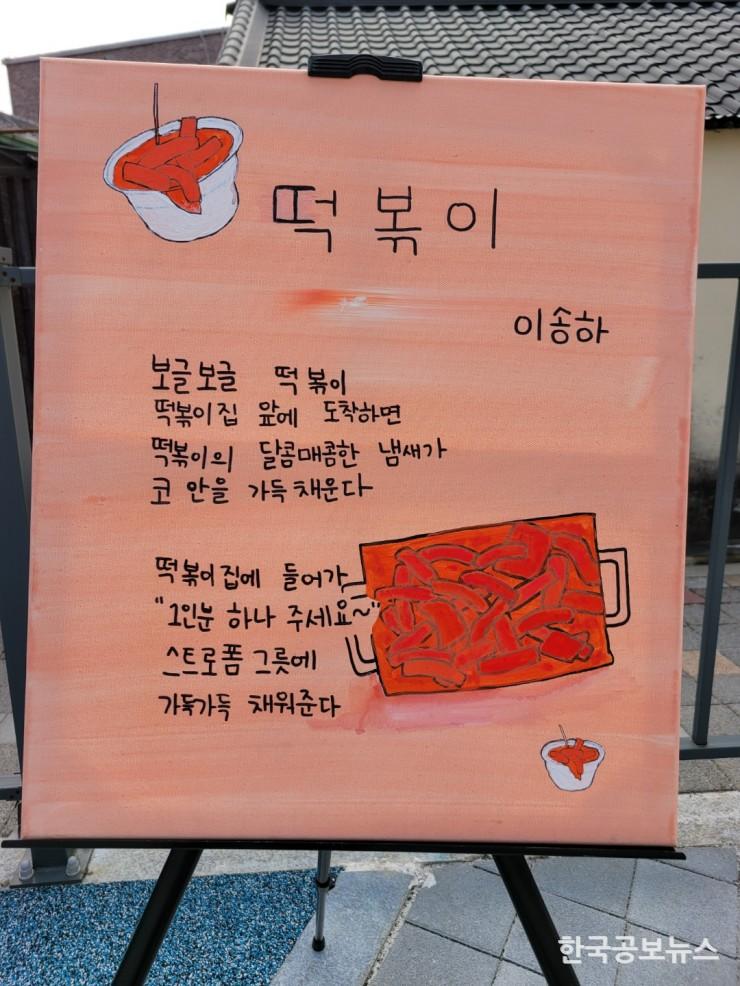 떡볶이
이송하
보글보글 떡볶이
떡볶이집 앞에 도착하면
떡볶이의 달콤매콤한 냄새가
코 안을 가득채운다
떡볶이집에 들어가
"1인분 하나 주세요~"
스트로폼 그릇에
가득가득 채워준다
한국공보뉴스